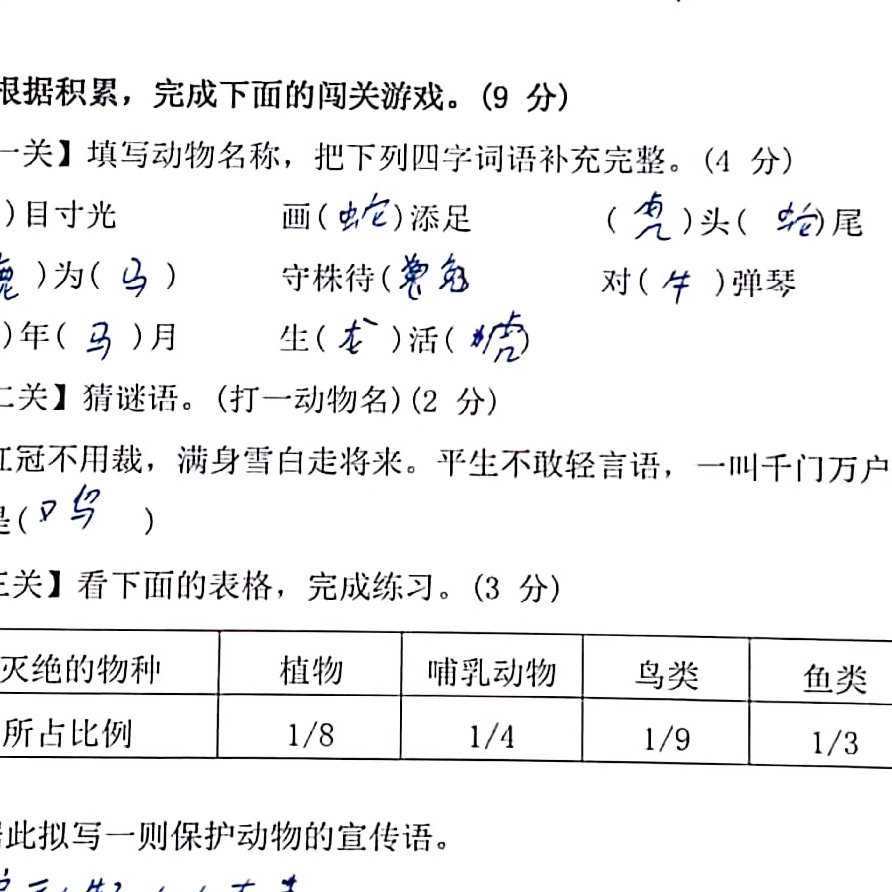 根据积累，完成下面的闯关游戏。(9 分)
一关】填写动物名称，把下列四字词语补充完整。(4 分)
)目寸光 画(蛇)添足 (虎)头(蛇)尾
鹿)为(马) 守株待( 对(牛)弹琴
)年(马)月 生(龙)活(虎)
二关】猜谜语。(打一动物名)(2 分)
红冠不用裁，满身雪白走将来。平生不敢轻言语，一叫千门万户
是(鸡)
三关】看下面的表格，完成练习。(3 分)
灭绝的物种 植物 哺乳动物 鸟类 鱼类
所占比例 1/8 1/4 1/9 1/3
此拟写一则保护动物的宣传语。